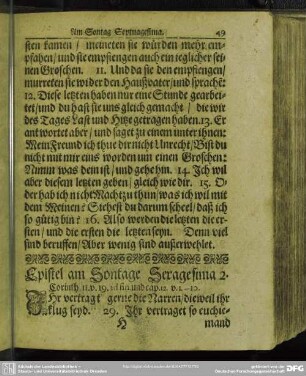 Am Sontag Septuagesima. 49
sten kamen / meineten sie würden mehr em-
pfahen / und sie empfiengen auch ein jeglicher sei-
nen Groschen. 11. Und da sie den empfiengen /
murreten sie wider den Haußvater / und sprachẽ:
12. Diese letzten haben nur eine Stunde gearbei-
tet / und du hast sie uns gleich gemacht / die wir
des Tages Last und Hitze getragen haben. 13. Er
antwortet aber / und saget zu einem unter ihnen:
Mein Freund ich thue dir nicht Unrecht / Bist du
nicht mit mir eins worden um einen Groschen?
Nimm was dein ist / und gehe hin. 14. Ich wil
aber diesem letzten geben / gleich wie dir. 15. O-
der hab ich nicht Macht zu thun / was ich wil mit
dem Meinen? Siehest du darum scheel / daß ich
so gütig bin? 16. Also werden die letzten die er-
sten / und die ersten die letzten seyn. Denn viel
sind beruffen / Aber wenig sind außerwehlet.
Epistel am Sontage Sexagesima 2.
Corinth. 11. v. 19. und cap. 12. v. 1.-10.
Ihr vertragt gerne die Narren / dieweil ihr
klug seyd. 29. Ihr vertraget so euch ie-
H mand